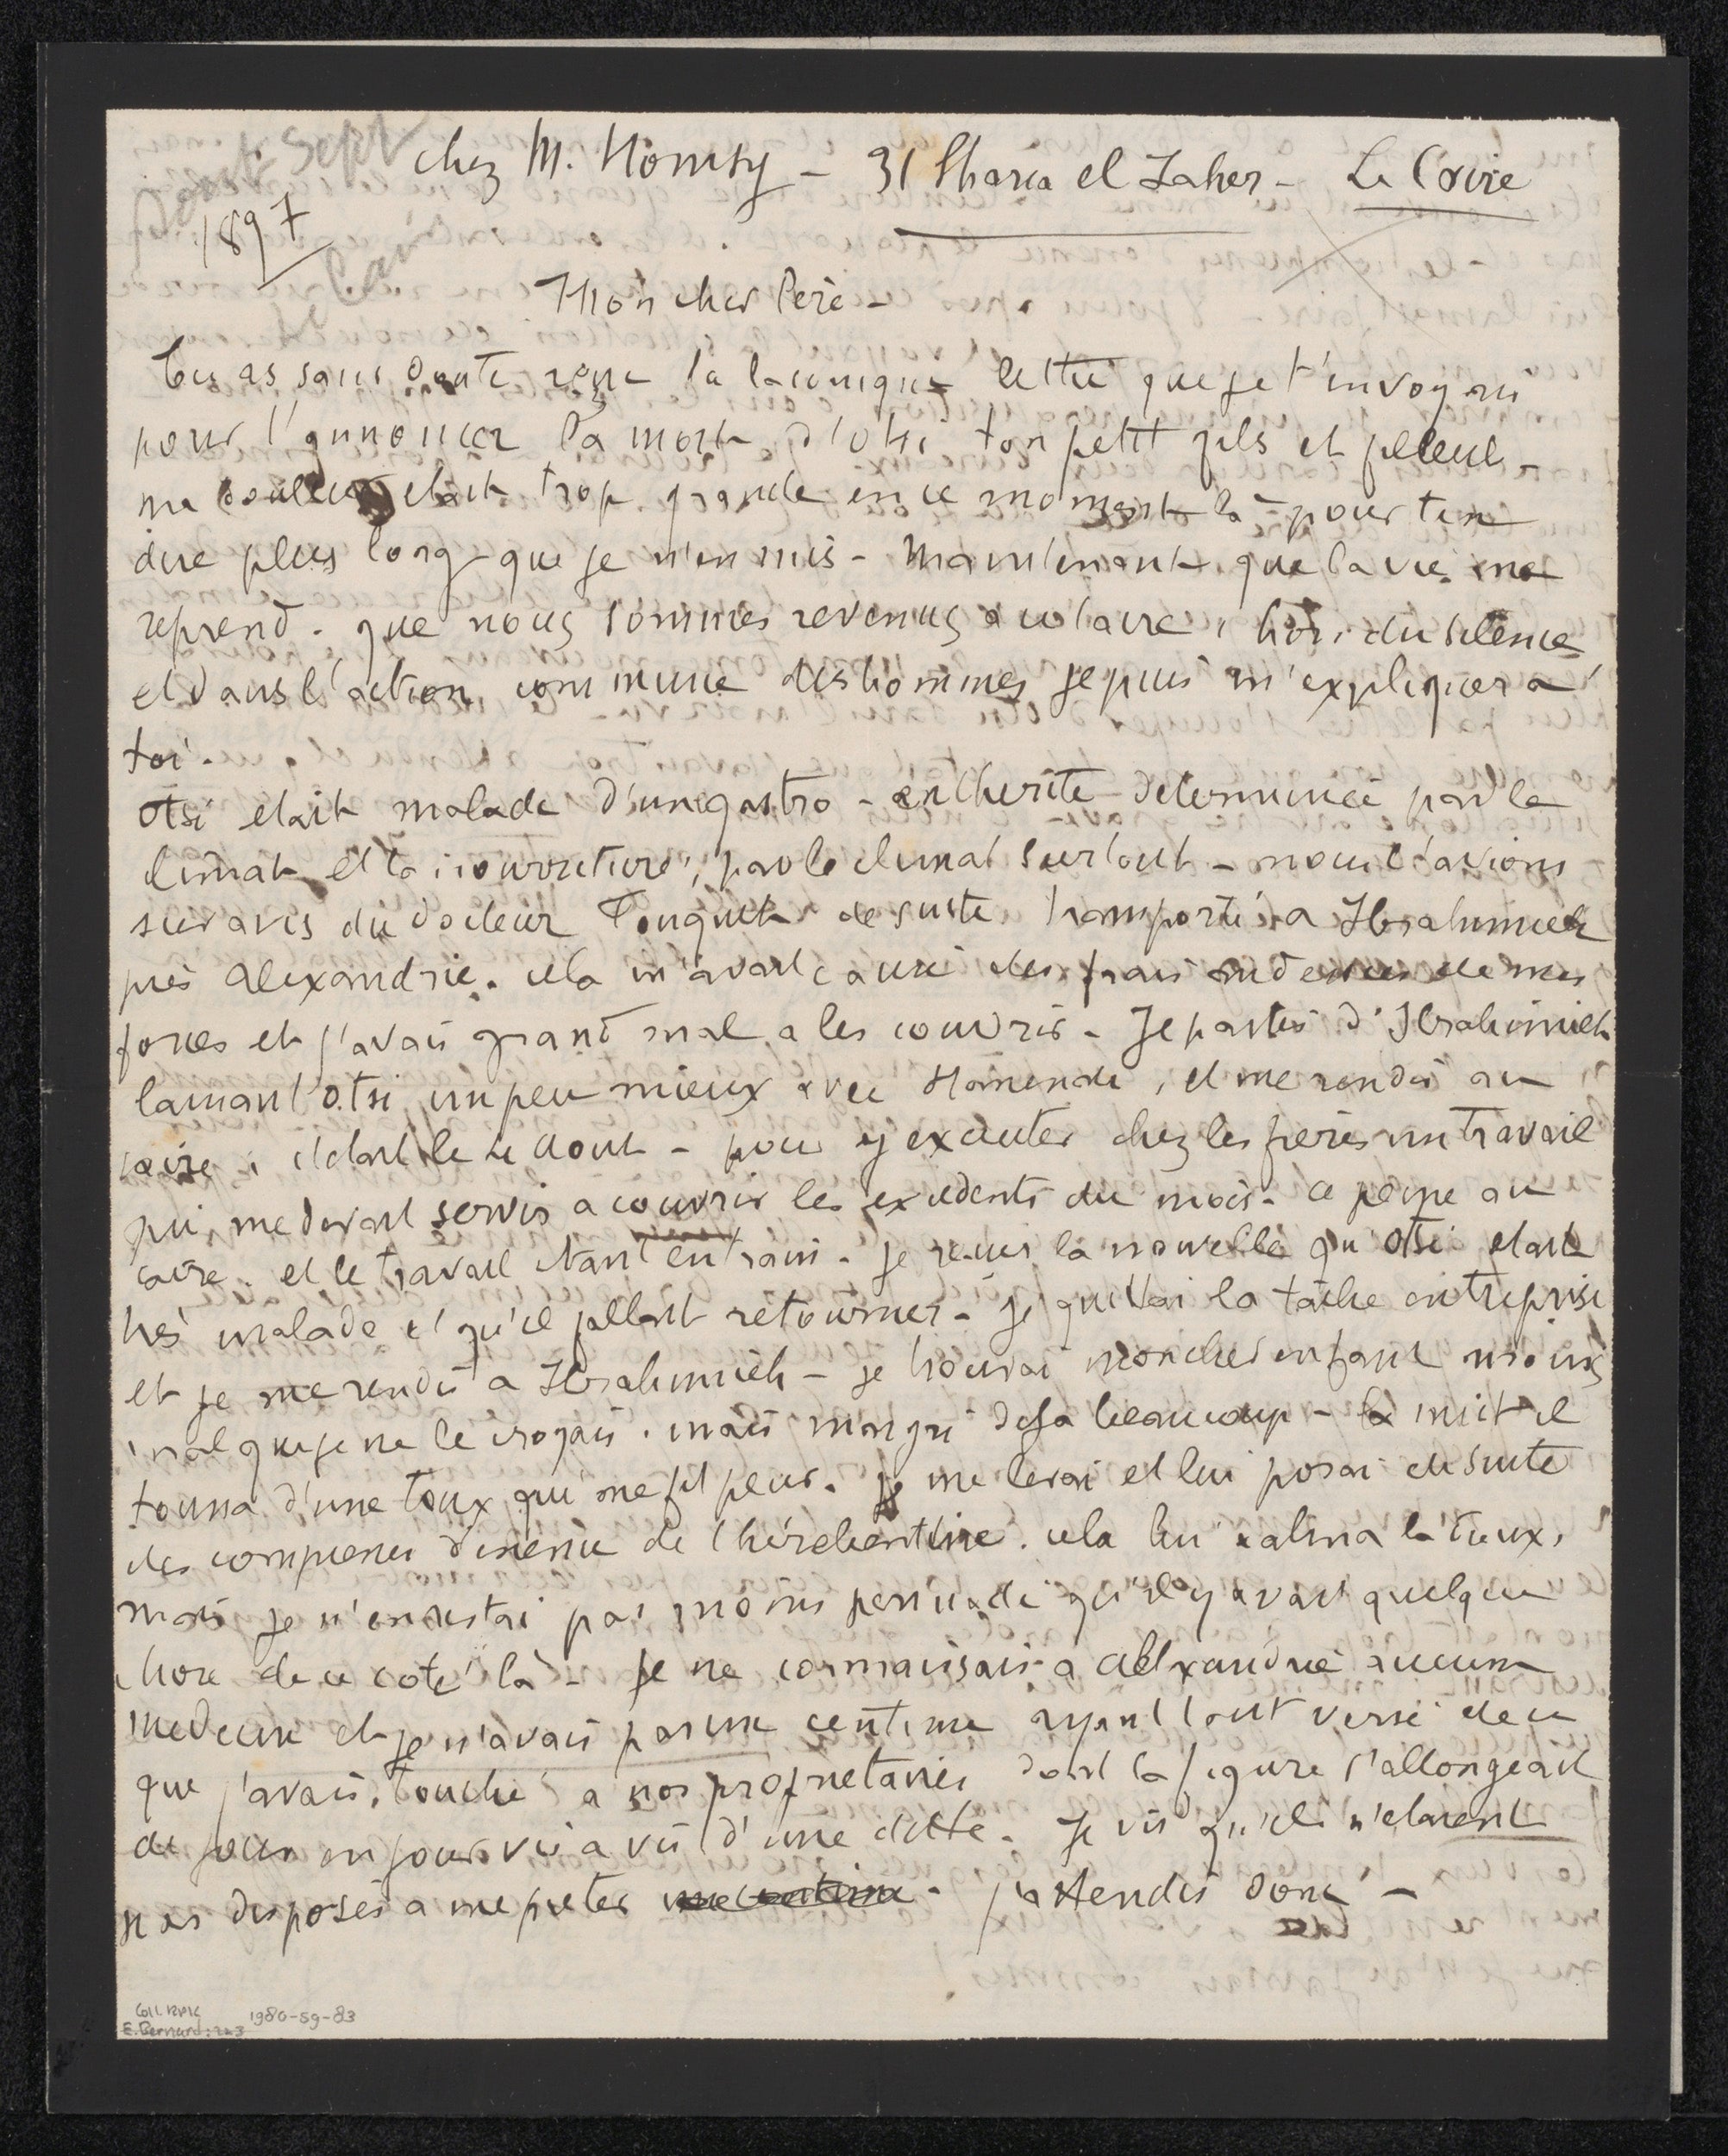 Aout-Sept
chez M. Homsy - 31 Sharia el Zaher - Le Caire
1897
Le Caire
Mon cher Père -
Tu as sans doute reçu la laconique lettre que je t'envoyai
pour t'annoncer la mort d'otsi ton petit fils et filleul -
ma douleur etait trop grande en ce moment là pour t'en
dire plus long que je n'en mis - Maintenant que la vie me
reprend. que nous sommes revenus au Caire, hors du silence
et dans l'action commune des hommes je puis m'expliquer à
toi.
otsi etait malade d'une gastro-entherite determinée par le
climat et la nourriture, par le climat surtout - nous l'avions
sur avis du docteur Fouquet de suite transporté a Ibrahimieh
près Alexandrie. cela m'avait causé des frais au dessus de mes
forces et j'avais grand mal a les couvrir - Je partis d'Ibrahimieh
laissant otsi un peu mieux avec Hanenah, et me rendis au
caire, c'etait le 4 Aout - pour y executer chez les frères un travail
qui me devait servir a couvrir les exedents du mois - a peine au
caire. et le travail etant en train - je reçus la nouvelle qu'otsi etait
très malade et qu'il fallait retourner - je quittai la tâche entreprise
et je me rendis a Ibrahimieh - je trouvai mon cher enfant moins
mal que je ne le croyais. mais maigri deja beaucoup - la nuit il
toussa d'une toux qui me fit peur. je me levai et lui posai de suite
des compresses d'essence de thérébentine. cela lui calma la toux,
mais je n'en restai pas moins persuadé qu'il y avait quelque
chose de ce coté là - je ne connaissais a Alexandrie aucun
medecin et je n'avais pas un centime ayant tout versé de ce
que j'avais touché a nos proprietaires dont la figure s'allongeait
de jour en jour vis a vis d'une dette. Je vis qu'ils n'etaient
pas disposés a me preter un centime - j'attendis donc -
Coll. RMK
E. Bernard: 223
1980-59-83